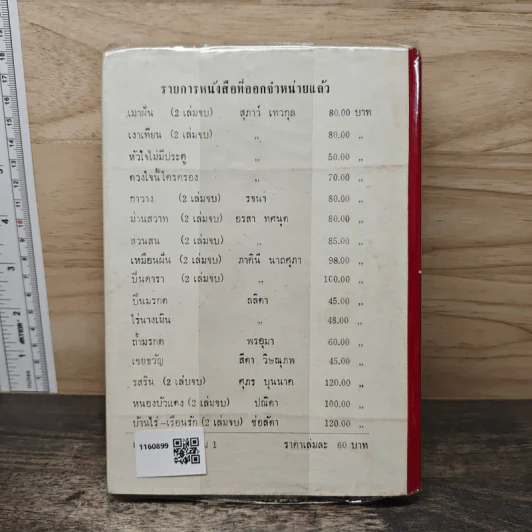 รายการหนังสือที่ออกจำหน่ายแล้ว
เมาฝัน (2 เล่มจบ) สุภาว์ เทวกุล 80.00 บาท
เงาเทียน (2 เล่มจบ) ,, 80.00 ,,
หัวใจไม่มีประตู ,, 50.00 ,,
ดวงใจนี้ใครครอง ,, 70.00 ,,
กาวาง (2 เล่มจบ) รจนา 80.00 ,,
ม่านสวาท (2 เล่มจบ) อรสา ทศนุต 80.00 ,,
สวนสน (2 เล่มจบ) ,, 85.00 ,,
เหมือนฝัน (2 เล่มจบ) ภาคินี นาลศุภา 98.00 ,,
ปิ่นดารา (2 เล่มจบ) ,, 100.00 ,,
ปิ่นมรกต ลลิตา 45.00 ,,
ไร่นางเมิน ,, 48.00 ,,
ถ้ำมรกต พรอุมา 60.00 ,,
เชยขวัญ สีดา วิษณุภพ 45.00 ,,
รสริน (2 เล่มจบ) ศุภร บุนนาค 120.00 ,,
หนองบัวแดง (2 เล่มจบ) ปณิตา 100.00 ,,
บ้านไร่-เรือนรัก (2 เล่มจบ) ช่อลัดา 120.00 ,,
1 ราคาเล่มละ 60 บาท
1160899